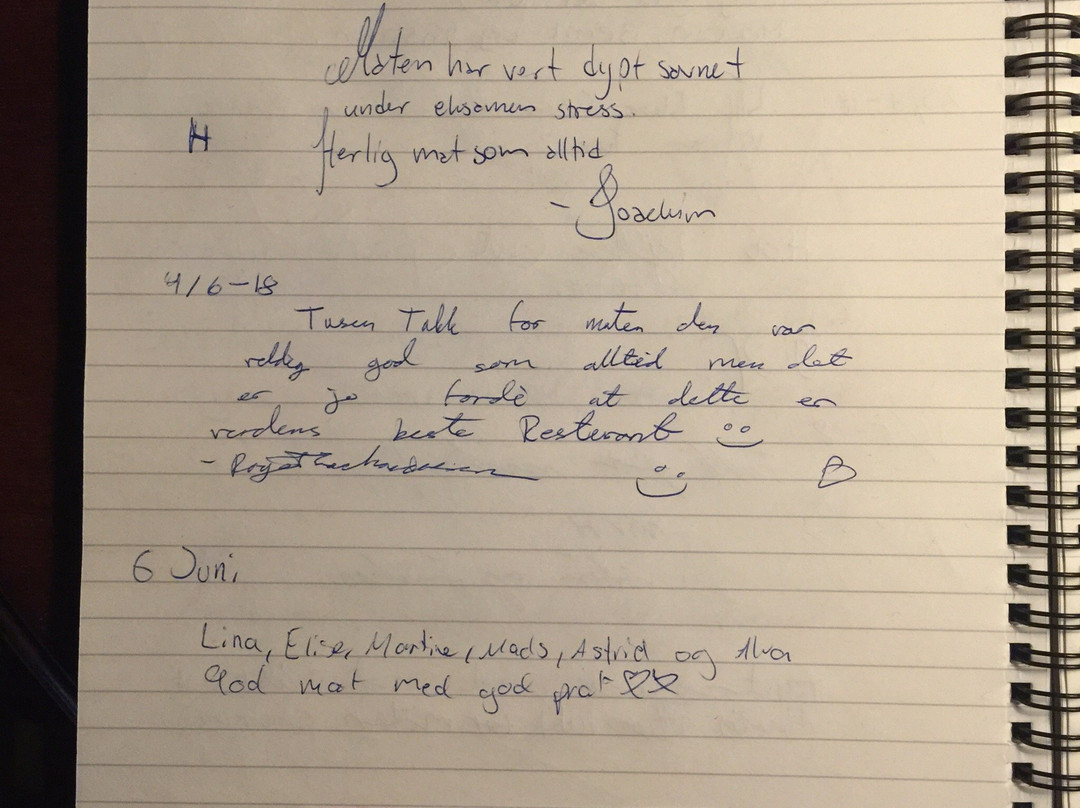 Maten har vert dypt savnet
under eksamen stress.
H
Herlig mat som alltid
- Joachim
4/6-18
Tusen Takk for maten den var
veldig god som alltid men det
er jo fordè at dette er
verdens beste Resterant
6 Juni
Lina, Elise, Martine, Mads, Astrid og Alva
God mat med god prat